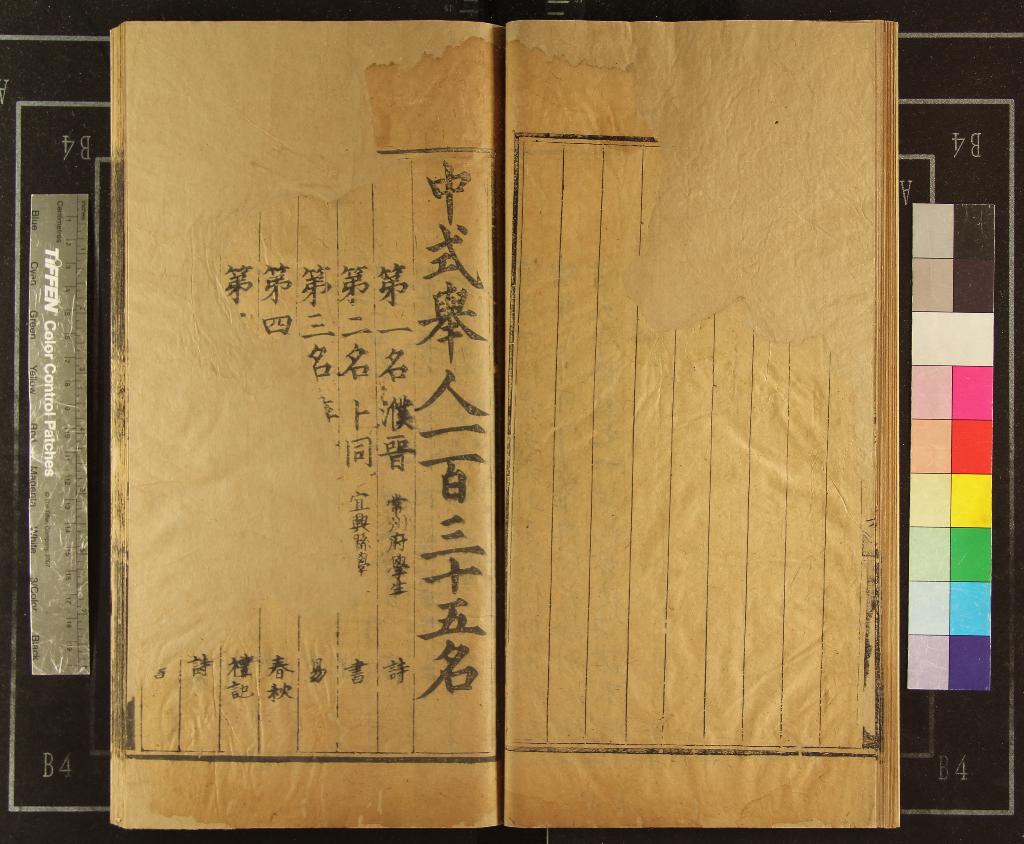 中式舉人一百三十五名
第一名濮晉 常州府學生 詩
第二名卜同 宜興縣學 書
第三名 易
第四 春秋
第 禮記
詩
TIFFEN Color Control Patches
Blue Cyan Green Yellow Red Magenta White 3/Color Black
Centimetres
B4
B4
B4
B4
A
A